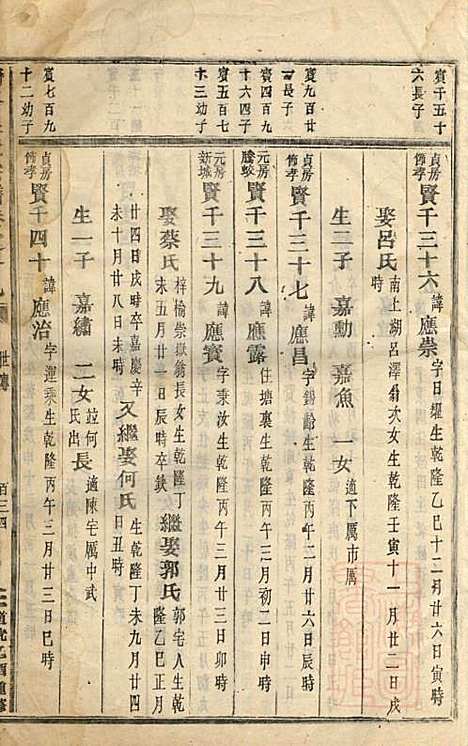 寳千五十
六長子
寳九百廿
一長子
寳四百九
十六四子
寳五百七
十三幼子
寳七百九
十二幼子
貞房
佈孝
賢千三十六 諱應崇 字日墀生乾隆乙巳十二月廿六日寅時
娶呂氏 南上湖呂澤翁次女生乾隆壬寅十一月廿二日戌
時
生二子 嘉勳 嘉魚 一女 適下厲市厲
貞房
佈孝
賢千三十七 諱應昌 字錫齡生乾隆丙午二月廿六日辰時
元房
騰蛟
賢千三十八 諱應露 住塘裏生乾隆丙午三月初二日申時
元房
新城
賢千三十九 諱應賓 字秉汝生乾隆丙午三月廿三日卯時
娶蔡氏 梓楡崇嶽翁長女生乾隆丁
未五月廿一日辰時卒缺
繼娶郭氏 郭宅人生乾
隆乙巳正月
廿四日戌時卒嘉慶辛
未十月廿八日未時
又繼娶何氏 生乾隆丁未九月廿四
日丑時
生一子 嘉繡 二女 竝何
氏出 長 適陳宅厲中武
貞房
佈孝
賢千四十 諱應治 字運乘生乾隆丙午三月廿三日巳時
世傳
百三四